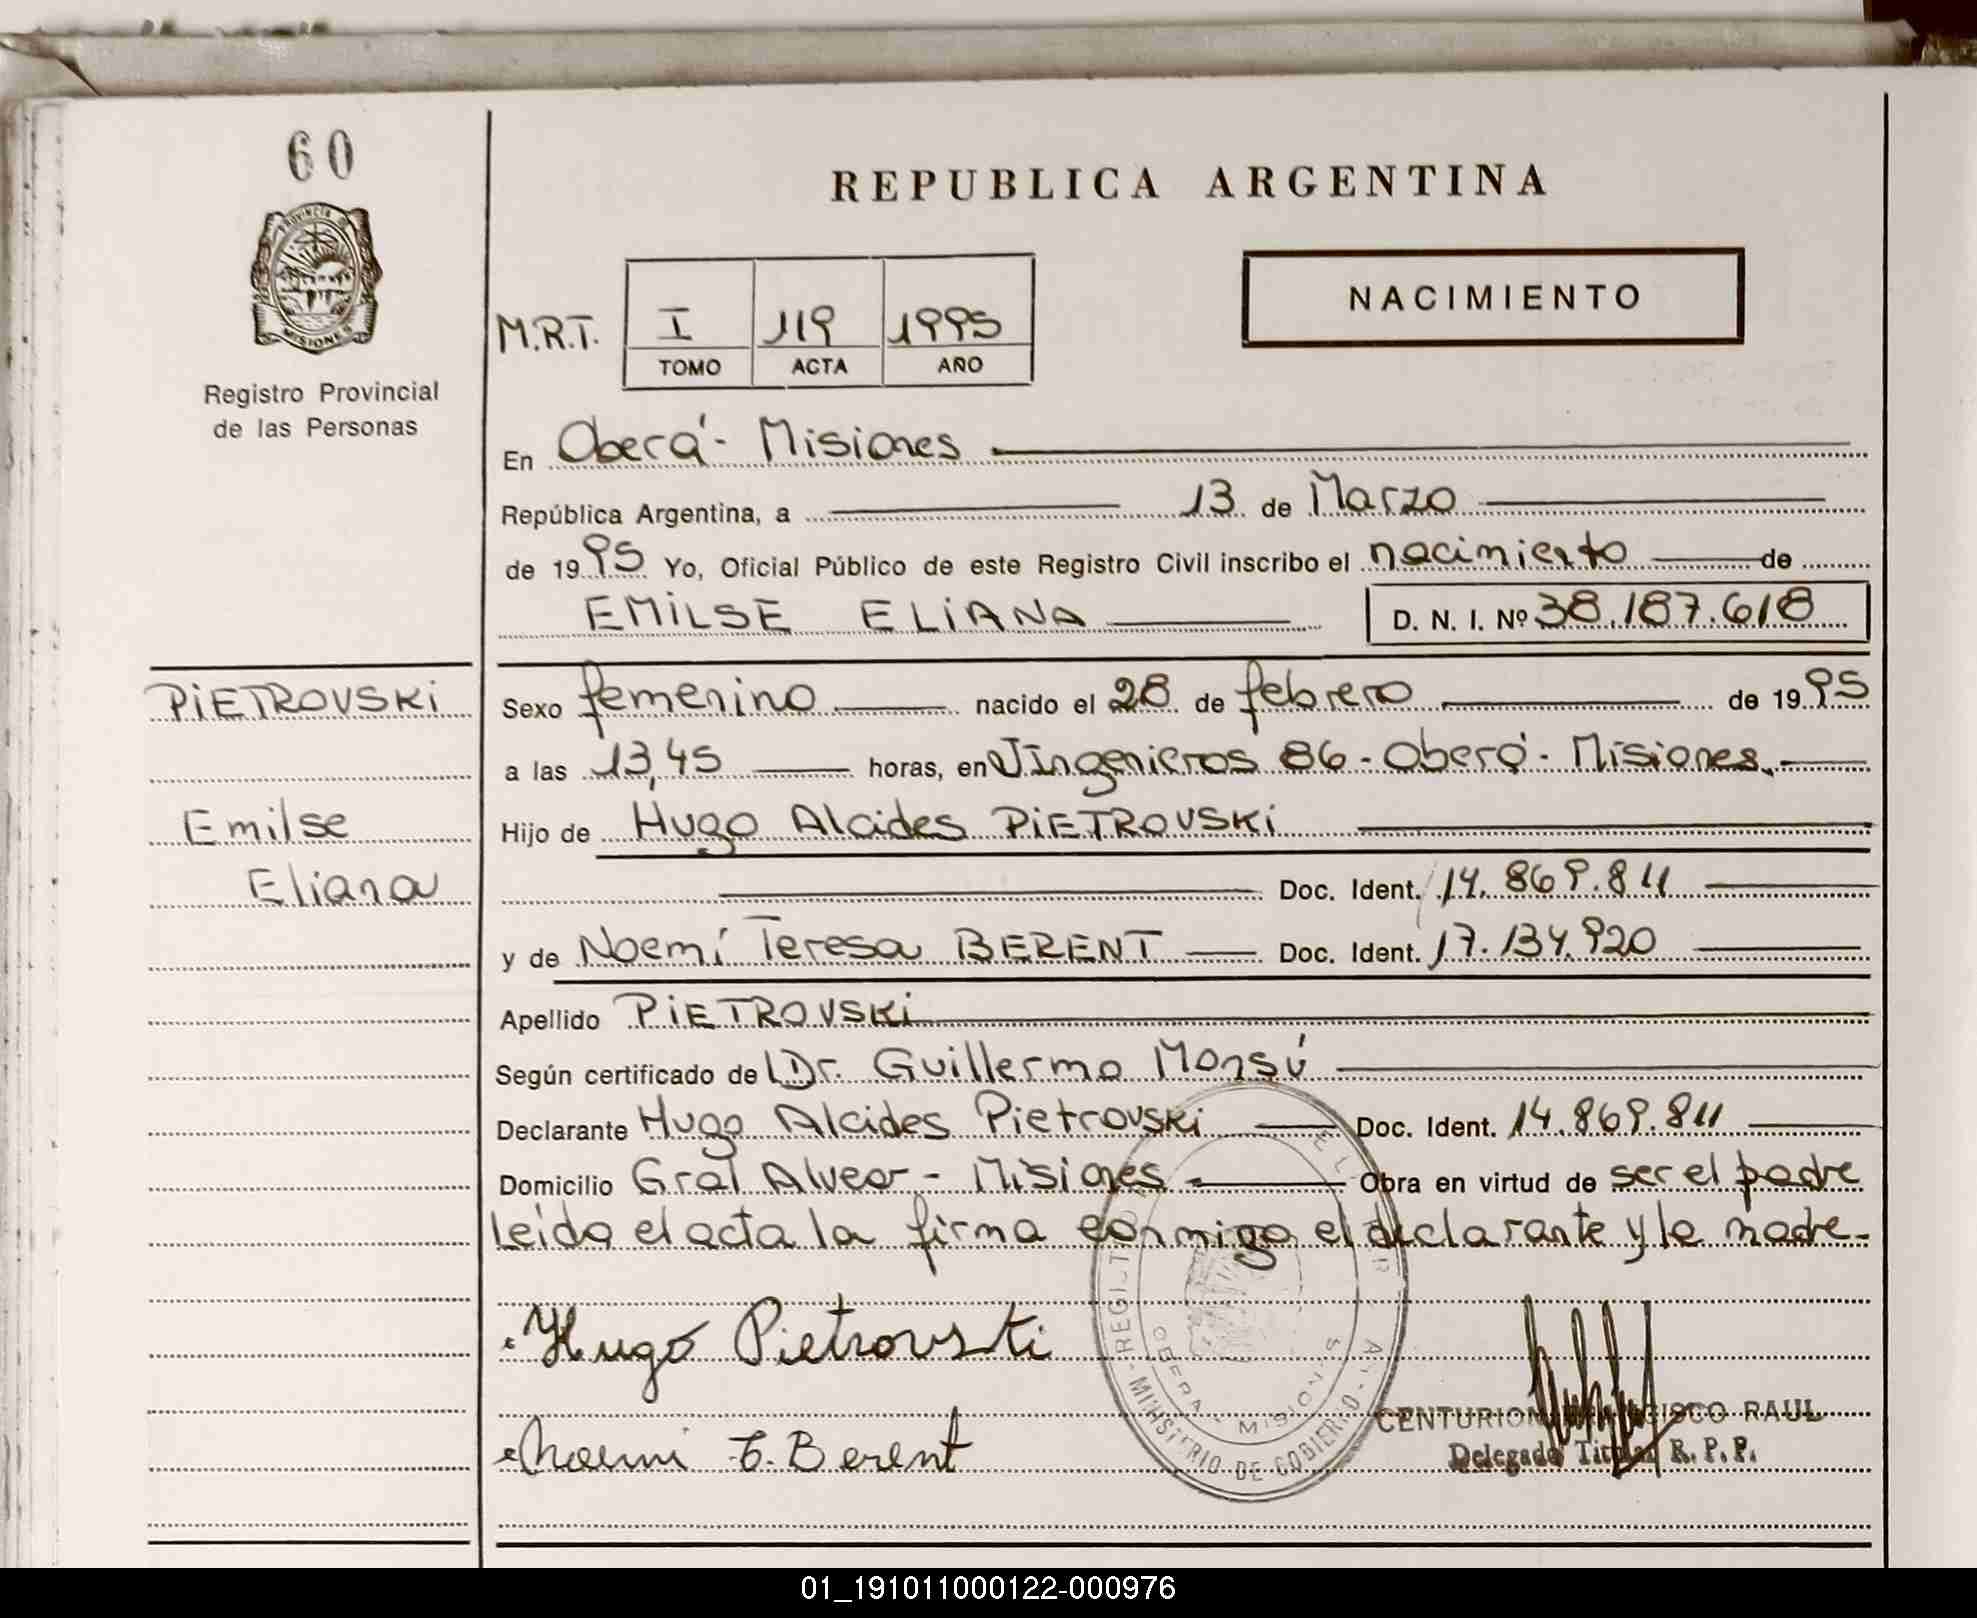 60
REPUBLICA ARGENTINA
PROVINCIA DE
MISIONES
Registro Provincial
de las Personas
NACIMIENTO
M.R.T. I 119 1995
TOMO ACTA AÑO
En Oberá - Misiones
República Argentina, a 13 de Marzo
de 1995 Yo, Oficial Público de este Registro Civil inscribo el nacimiento de
EMILSE ELIANA D. N. I. Nº 38.187.618
PIETROVSKI
Emilse
Eliana
Sexo femenino nacido el 28 de febrero de 1995
a las 13,45 horas, en J Ingenieros 86 - Oberá - Misiones.
Hijo de Hugo Alcides PIETROVSKI
Doc. Ident. 14.869.811
y de Noemí Teresa BERENT Doc. Ident. 17.134.920
Apellido PIETROVSKI
Según certificado de Dr. Guillermo Monsú
Declarante Hugo Alcides Pietrovski Doc. Ident. 14.869.811
Domicilio Gral Alvear - Misiones Obra en virtud de ser el padre
Leida el acta la firma conmigo el declarante y la madre-
Hugo Pietrovski
Noemi T. Berent
MINISTERIO DE GOBIERNO
OBERA - MISIONES
CENTURION FRANCISCO RAUL
Delegado Titular R. P. P.
01_191011000122-000976